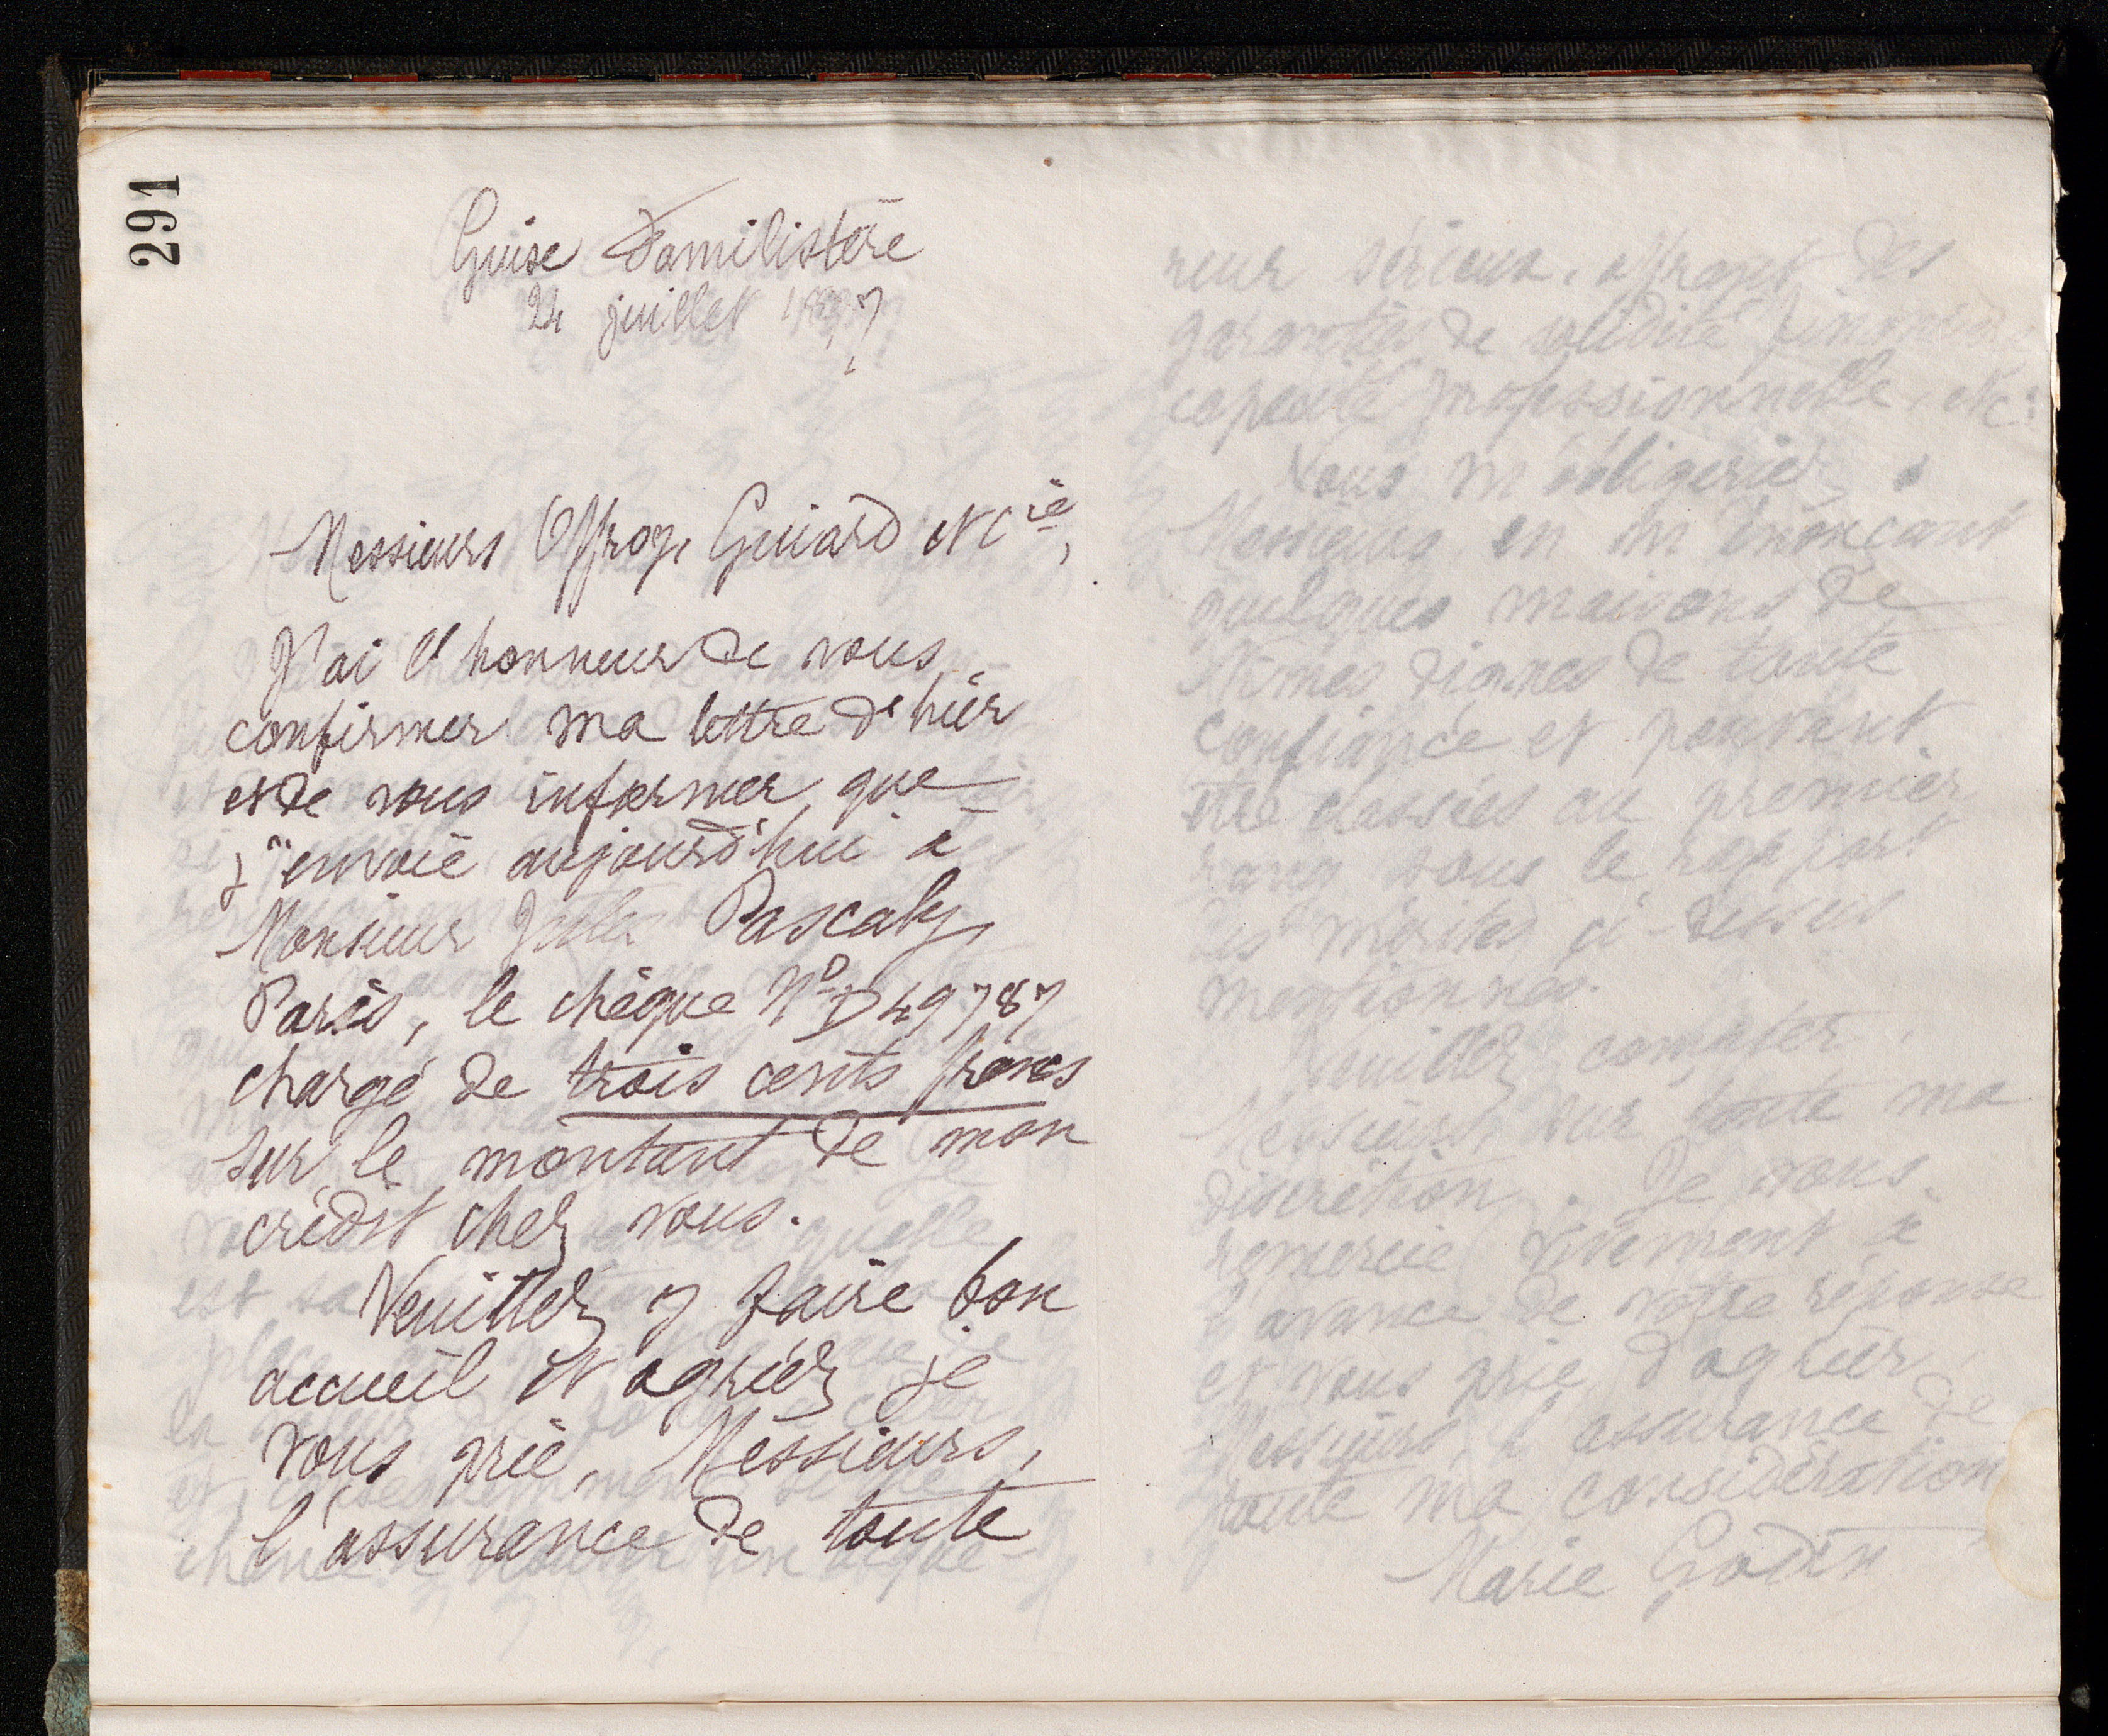 291
Guise Familistère
24 juillet 1897
Messieurs Offroy, Guiard et Cie,
J'ai l'honneur de vous
confirmer ma lettre d'hier
et de vous informer que
j'envoie aujourd'hui à
Monsieur Jules Pascaly,
Paris, le chèque No D 49787
chargé de trois cents francs
sur le montant de mon
crédit chez vous.
Veuillez y faire bon
accueil et agréer je
vous prie, Messieurs,
l'assurance de toute
rieur sérieux, offrant des
garanties de solidité
capacité professionnelle, etc:
Vous m'obligeriez,
Messieurs en m'énonçant
quelques maisons de
Nîmes dignes de toute
confiance et pouvant
être classées au premier
rang sous le rapport
des mérites ci-dessus
mentionnés.
Veuillez compter,
Messieurs sur toute ma
discrétion. Je vous
remercie vivement à
l'avance de votre réponse
et vous prie d'agréer,
Messieurs, l'assurance de
toute ma considération
Marie Godin